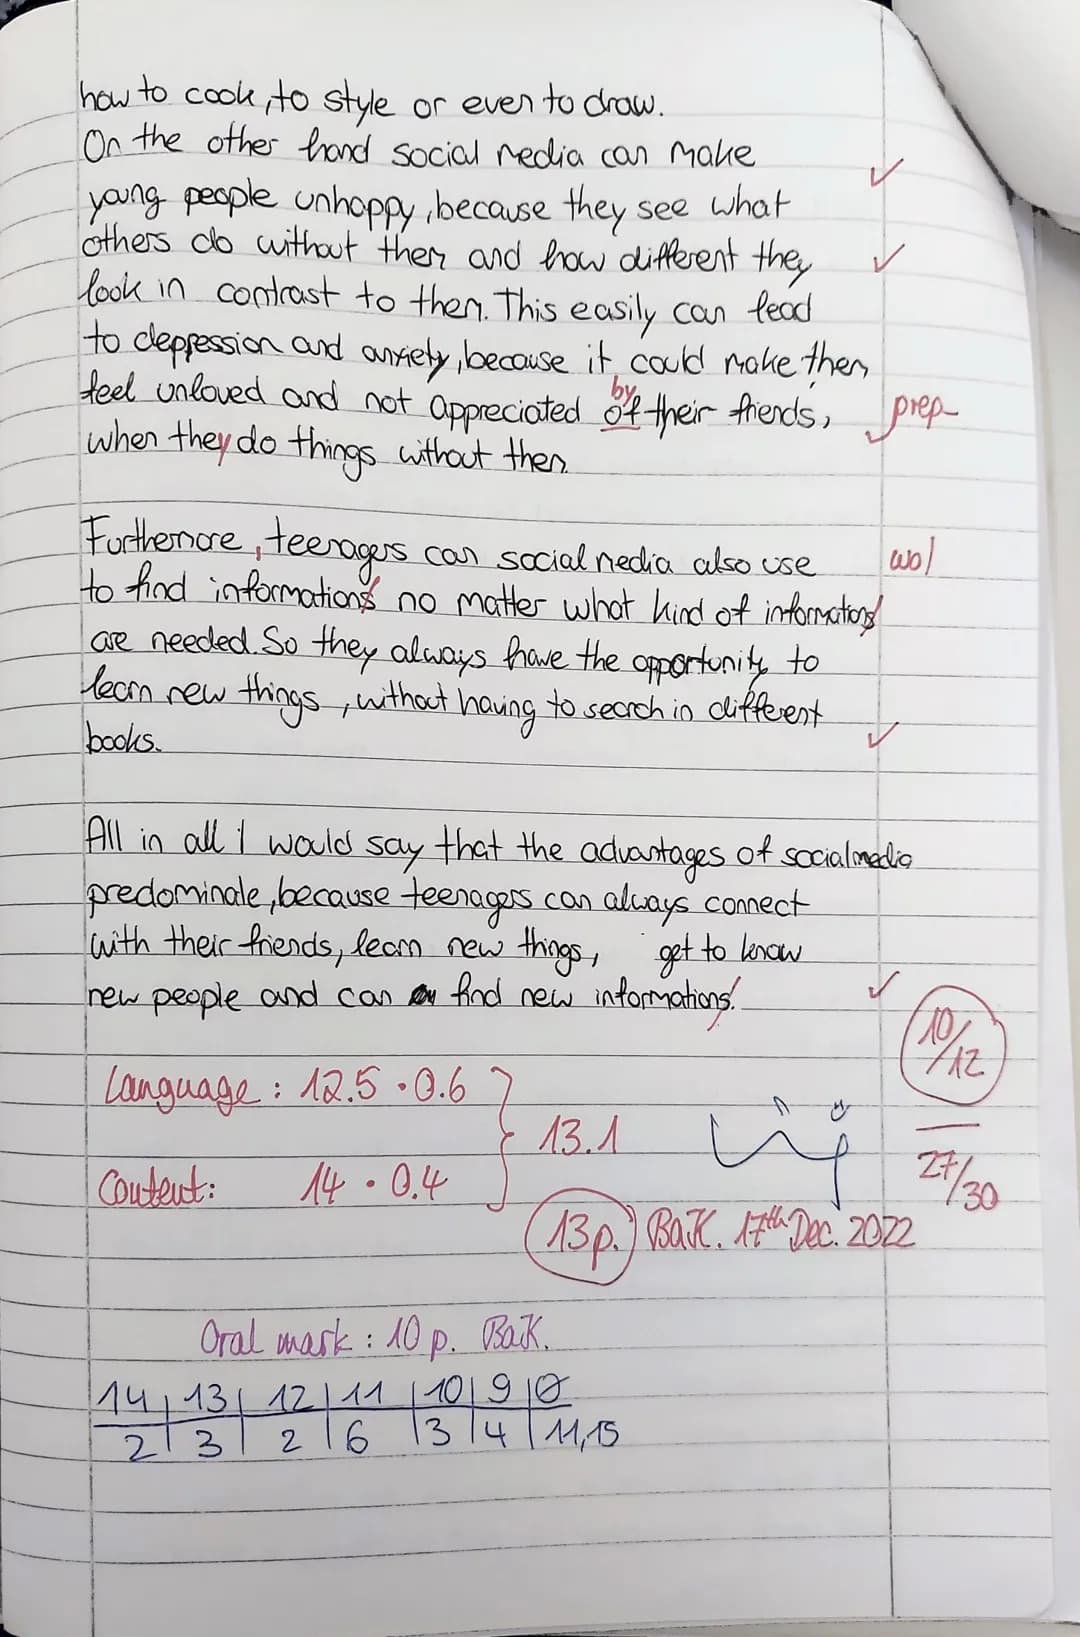 how to cook, to style or even to draw.
On the other hand social media can make
young people unhappy, because they see what
others do without them and how different they
look in contrast to them. This easily can lead
to depression and anxiety, because it could make them
by
feel unloved and not appreciated of their friends, prep
when they do things without them
Furthermore, teenagers can social media also use wo/
to find informations no matter what kind of informations
are needed. So they always have the opportunity to
learn new things, without having to search in different
books.
All in all I would say that the advantages of social media
predominate, because teenagers can always connect
with their friends, learn new things, get to know
new people and can find new informations.
10/12
Language: 12.5 · 0.6
13.1
27/30
Content: 14 · 0.4
13p. BaK. 17th Dec. 2022
Oral mark: 10 p. BaK.
14 | 13 | 12 | 11 | 10 | 9 | Ø
2 | 3 | 2 | 6 | 3 | 4 | 11,15